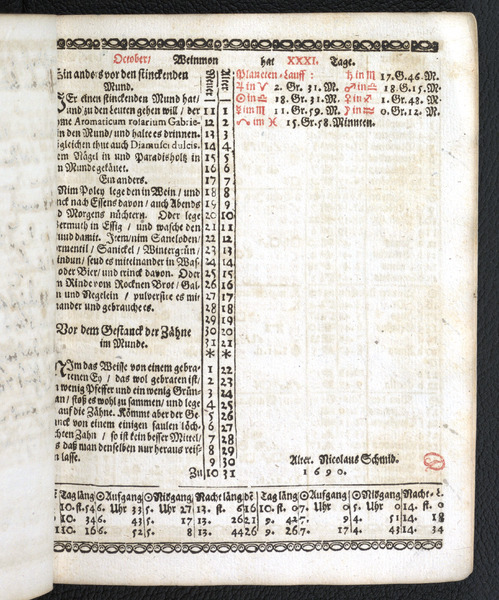 October/ Weinmon hat XXXI. Tage.
Ein anders vor den stinckenden
Mund.
Er einen stinckenden Mund hat/
und zu den leuten gehen will / der
me Aromaticum rosarum Gabrie-
in den Mund/ und halte es drinnen.
gleichen thut auch Diamusci dulcis.
em Nägel in und Paradisholtz in
n Munde gekäuet.
Ein anders.
Nim Poley lege den in Wein / und
nck nach Essens davon / auch Abends
d Morgens nüchtern. Oder lege
ermuth in Essig / und wascht den
und damit. Item/nim Saneloden/
rmentil / Sanickel / Wintergrün/
indun / seud es miteinander in Was-
oder Bier/ und trinck davon. Oder
n Rinde vom Rocknen Brot/ Gal-
n und Negelein / pulverisier es mit
nander und gebrauche es.
Vor dem Gestanck der Zähne
im Munde.
NIm das Weisse von einem gebra-
tenen Ey / das wol gebraten ist/
n wenig Pfeffer und ein wenig Grün-
an/ stoß es wohl zu sammen/ und lege
auf die Zähne. Kömmt aber der Ge-
nck von einem einigen faulen löch-
chten Zahn / so ist kein besser Mittel/
s daß man denselben nur heraus reis-
n lasse.
Zu
Neuer Alter
11 1
12 2
13 3
14 4
15 5
16 6
17 7
18 8
19 9
20 10
21 11
22 12
23 13
24 14
25 15
26 16
27 17
28 18
29 19
30 20
31 21
* *
1 22
2 23
3 24
4 25
5 26
6 27
7 28
8 29
9 30
10 31
Planeten-Lauff : ♄ in ♏ 17. G. 46. M.
♃ in ♈ 2. Gr. 31. M. ♂ in ♎ 18. G. 15. M.
☉ in ♎ 18. Gr. 31. M. ♀ in ♐ 1. Gr. 48. M.
☿ in ♏ 11. Gr. 59. M. ☽ in ♒ 0. Gr. 12. M.
☊ im ♓ 15. Gr. 58. Minuten.
Alter. Nicolaus Schmid.
1690.
Tag läng ☉Aufgang ☉Nidgang Nacht läng Tag läng ☉Aufgang ☉Nidgang Nacht-L.
10. st. 54 6. Uhr 33 5. Uhr 27 13. st. 6 16 10. st. 0 7. Uhr 0 5. Uhr 0 14. st. 0
10. 34 6. 43 5. 17 13. 26 21 9. 42 7. 9 4. 51 14. 18
10. 16 6. 52 5. 8 13. 44 26 9. 26 7. 17 4. 43 14. 34